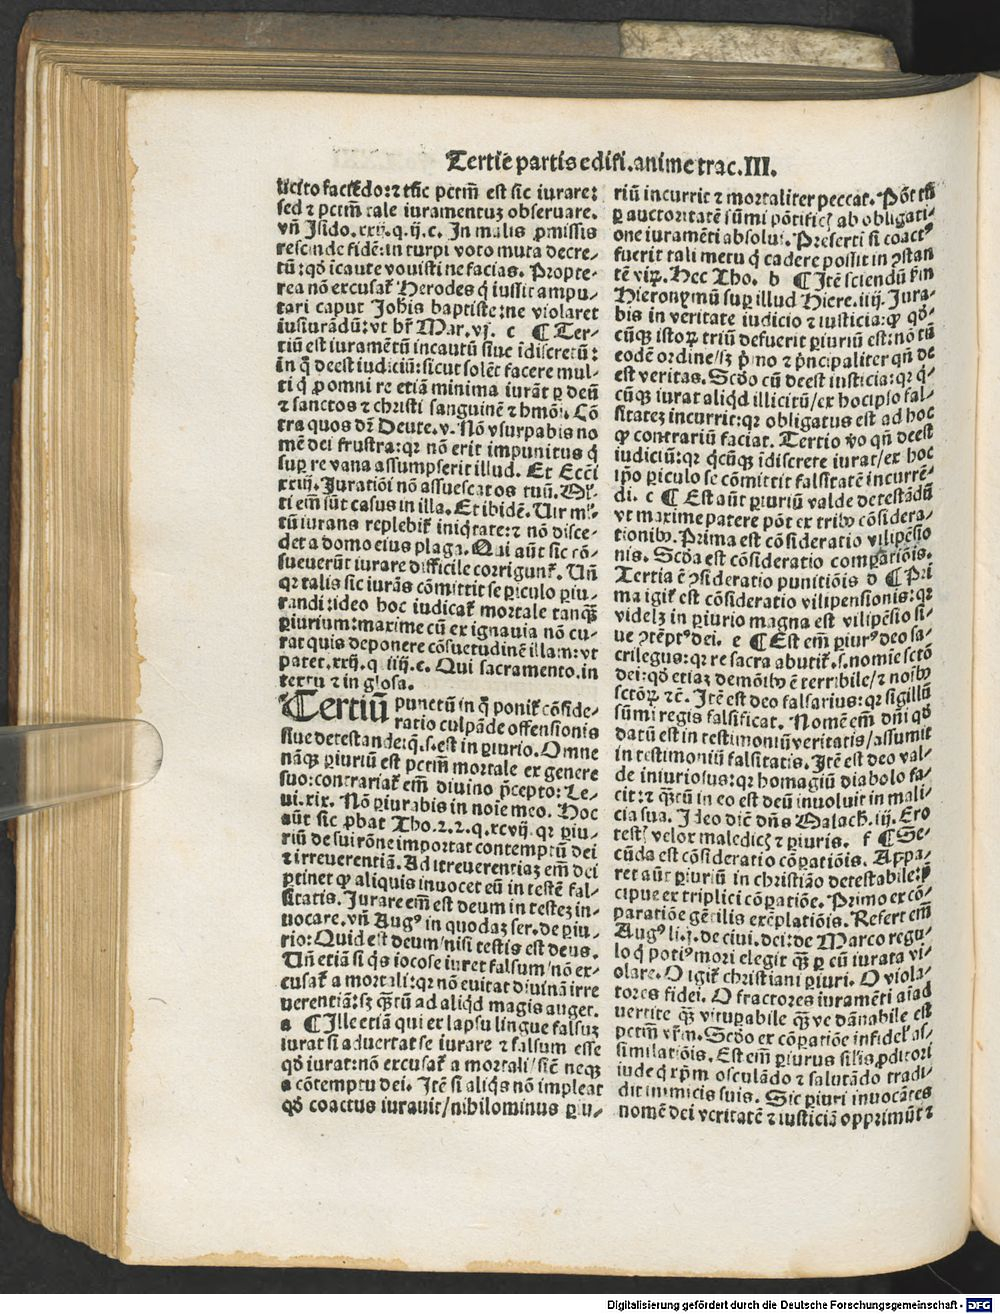 Tertie partis edifi. anime trac. III.
licito faciẽdo: ⁊ tũc pctm̃ est sic iurare:
sed ⁊ pctm̃ tale iuramentuꝫ obseruare.
vñ Isido. xxij. q. ij. c. In malis ꝓmissis
rescinde fidẽ: in turpi voto muta decre-
tũ: qđ ĩcaute vouisti ne facias. Propte-
rea nõ excusat᷑ Herodes q̃ iussit ampu-
tari caput Joh̃is baptiste: ne violaret
iusiurãdũ: vt hr̃ Mar. vj. c ¶ Ter-
tiũ est iuramẽtũ incautũ siue ĩdiscretũ:
in q̃ deest iudiciũ: sicut solẽt facere mul-
ti q̃ ꝓ omni re etiã minima iurãt ꝑ deũ
⁊ sanctos ⁊ christi sanguinẽ ⁊ hmõi. Cõ
tra quos dr̃ Deute. v. Nõ vsurpabis no
mẽ dei frustra: qꝛ nõ erit impunitus q̃
suꝑ re vana assumpserit illud. Et Ecc̃i
xxiij. Juratiõi nõ assuescat os tuũ. Ml̓-
ti em̃ sũt casus in illa. Et ibidẽ. Uir ml̓-
tũ iurans replebit᷑ iniq̃tate: ⁊ nõ disce-
det a domo eius plaga. Qui aũt sic cõ-
sueuerũt iurare difficile corrigunt᷑. Uñ
qꝛ talis sic iurãs cõmittit se ꝑiculo ꝑiu-
randi: ideo hoc iudicat᷑ mortale tanq̃ꝫ
ꝑiurium: maxime cũ ex ignauia nõ cu-
rat quis deponere cõsuetudinẽ illam: vt
patet. xxij. q iiij. c. Qui sacramento. in
textu ⁊ in glosa.
Tertiũ punctũ in q̃ ponit᷑ cõside-
ratio culpãde offensionis
siue detestande: q̃. s. est in ꝑiurio. Omne
nãqꝫ ꝑiuriũ est pctm̃ mortale ex genere
suo: contrariat᷑ em̃ diuino p̃cepto: Le-
ui. xix. Nõ ꝑiurabis in noĩe meo. Hoc
aũt sic ꝓbat Tho. 2. 2. q. xcvij. qꝛ ꝑiu-
riũ de sui rõne importat contemptũ dei
⁊ irreuerentiã. Ad irreuerentiaꝫ em̃ dei
ꝑtinet ꝙ aliquis inuocet eũ in testẽ fal-
sitatis. Jurare em̃ est deum in testeꝫ in-
uocare. vñ Augꝰ in quodaꝫ ser. de ꝑiu-
rio: Quid est deum/ nisi testis est deus.
Uñ etiã si q̃s iocose iuret falsum/ nõ ex-
cusat᷑ a mortali: qꝛ nõ euitat diuinã irre
uerentiã: sꝫ q̃ꝫtũ ad aliq̃d magis auget.
a ¶ Ille etiã qui ex lapsu lingue falsuꝫ
iurat si aduertat se iurare ⁊ falsum esse
qđ iurat: nõ excusat᷑ a mortali/ sic̃ neqꝫ
a cõtemptu dei. Itẽ si aliq̃s nõ impleat
qđ coactus iurauit/ nihilominus ꝑiu-
riũ incurrit ⁊ mortaliter peccat. Põt tñ
ꝑ auctoritatẽ sũmi põtificꝭ ab obligati-
one iuramẽti absolui. Presertĩ si coactꝰ
fuerit tali metu q̃ cadere possit in ꝯstan
tẽ viꝝ. Hec Tho. b ¶ Itẽ sciendũ ẜm
Hieronymũ suꝑ illud Hiere. iiij. Jura-
bis in veritate iudicio ⁊ iusticia: ꝙ qđ-
cũqꝫ istoꝝ triũ defuerit ꝑiuriũ est: nõ tñ
eodẽ ordine/ sꝫ p̃mo ⁊ p̃ncipaliter qñ de
est veritas. Scđo cũ deest iusticia: qꝛ q̃-
cũqꝫ iurat aliq̃d illicitũ/ ex hoc ipso fal-
sitateꝫ incurrit: qꝛ obligatus est ad hoc
ꝙ contrariũ faciat. Tertio ṽo qñ deest
iudiciũ: qꝛ q̃cũqꝫ ĩdiscrete iurat/ ex hoc
ip̃o ꝑiculo se cõmittit falsitatẽ incurrẽ-
di. c ¶ Est aũt ꝑiuriũ valde detestãdũ
vt maxime patere põt ex tribꝰ cõsidera-
tionibꝰ. Prima est cõsideratio vilipẽsio
nis. Scđa est cõsideratio compariõis.
Tertia ẽ ꝯsideratio punitiõis d ¶ Pri
ma igit᷑ est cõsideratio vilipensionis: qꝛ
videlꝫ in ꝑiurio magna est vilipẽsio si-
ue ꝯtẽptꝰ dei. e ¶ Est em̃ ꝑiurꝰ deo sa-
crilegus: qꝛ re sacra abutit᷑. s. nomĩe sctõ
dei: qđ etiaꝫ demõibꝰ ẽ terribile/ ⁊ noĩbꝰ
sctõꝝ ⁊c̃. Itẽ est deo falsarius: qꝛ sigillũ
sũmi regis falsificat. Nomẽ em̃ dñi qđ
datũ est in testimoniũ veritatis/ assumit
in testimoniũ falsitatis. Itẽ est deo val-
de iniuriosus: qꝛ homagiũ diabolo fa-
cit: ⁊ q̃ꝫtũ in eo est deũ inuoluit in mali-
cia sua. Ideo dic̃ dñs Malach. iij. Ero
testꝭ velox maledicꝭ ⁊ ꝑiuris. f ¶ Se-
cũda est cõsideratio cõꝑatiõis. Appa-
ret aũt ꝑiuriũ in christião detestabile: p̃
cipue ex triplici cõꝑatiõe. Primo ex cõ-
paratiõe gẽtilis exẽplatiõis. Refert em̃
Augꝰ li. j. de ciui. dei: de Marco regu-
lo q̃ potiꝰ mori elegit q̃ꝫ ꝑ cũ iurata vi-
olare. O igit᷑ christiani ꝑiuri. O viola-
tores fidei. O fractores iuramẽti aĩad
uertite q̃ꝫ vituꝑabile q̃ꝫ ve dãnabile est
pctm̃ vr̃m. Scđo ex cõꝑatiõe infidel̓ as-
similatiõis. Est em̃ ꝑiurus sil̓is ꝓditori
iude q̃ xp̃m osculãdo ⁊ salutãdo tradi-
dit inimicis suis. Sic ꝑiuri inuocãtes
nomẽ dei veritatẽ ⁊ iusticiã opprimũt ⁊
Digitalisierung gefördert durch die Deutsche Forschungsgemeinschaft - DFG